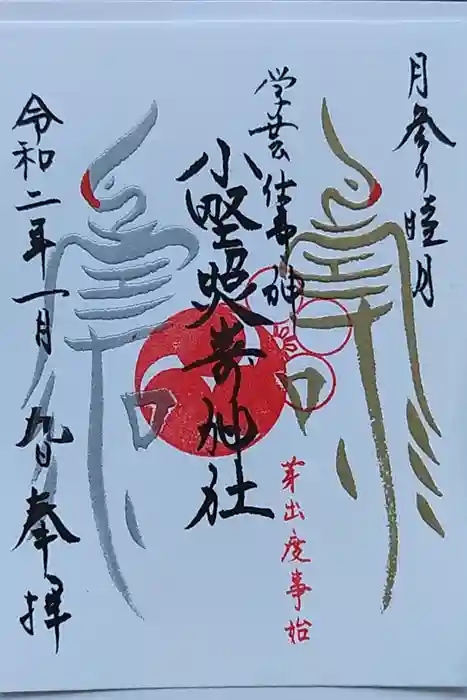 月参り睦月
学芸仕事神
小野照嵜神社
芽出度事始
令和二年一月九日奉拝